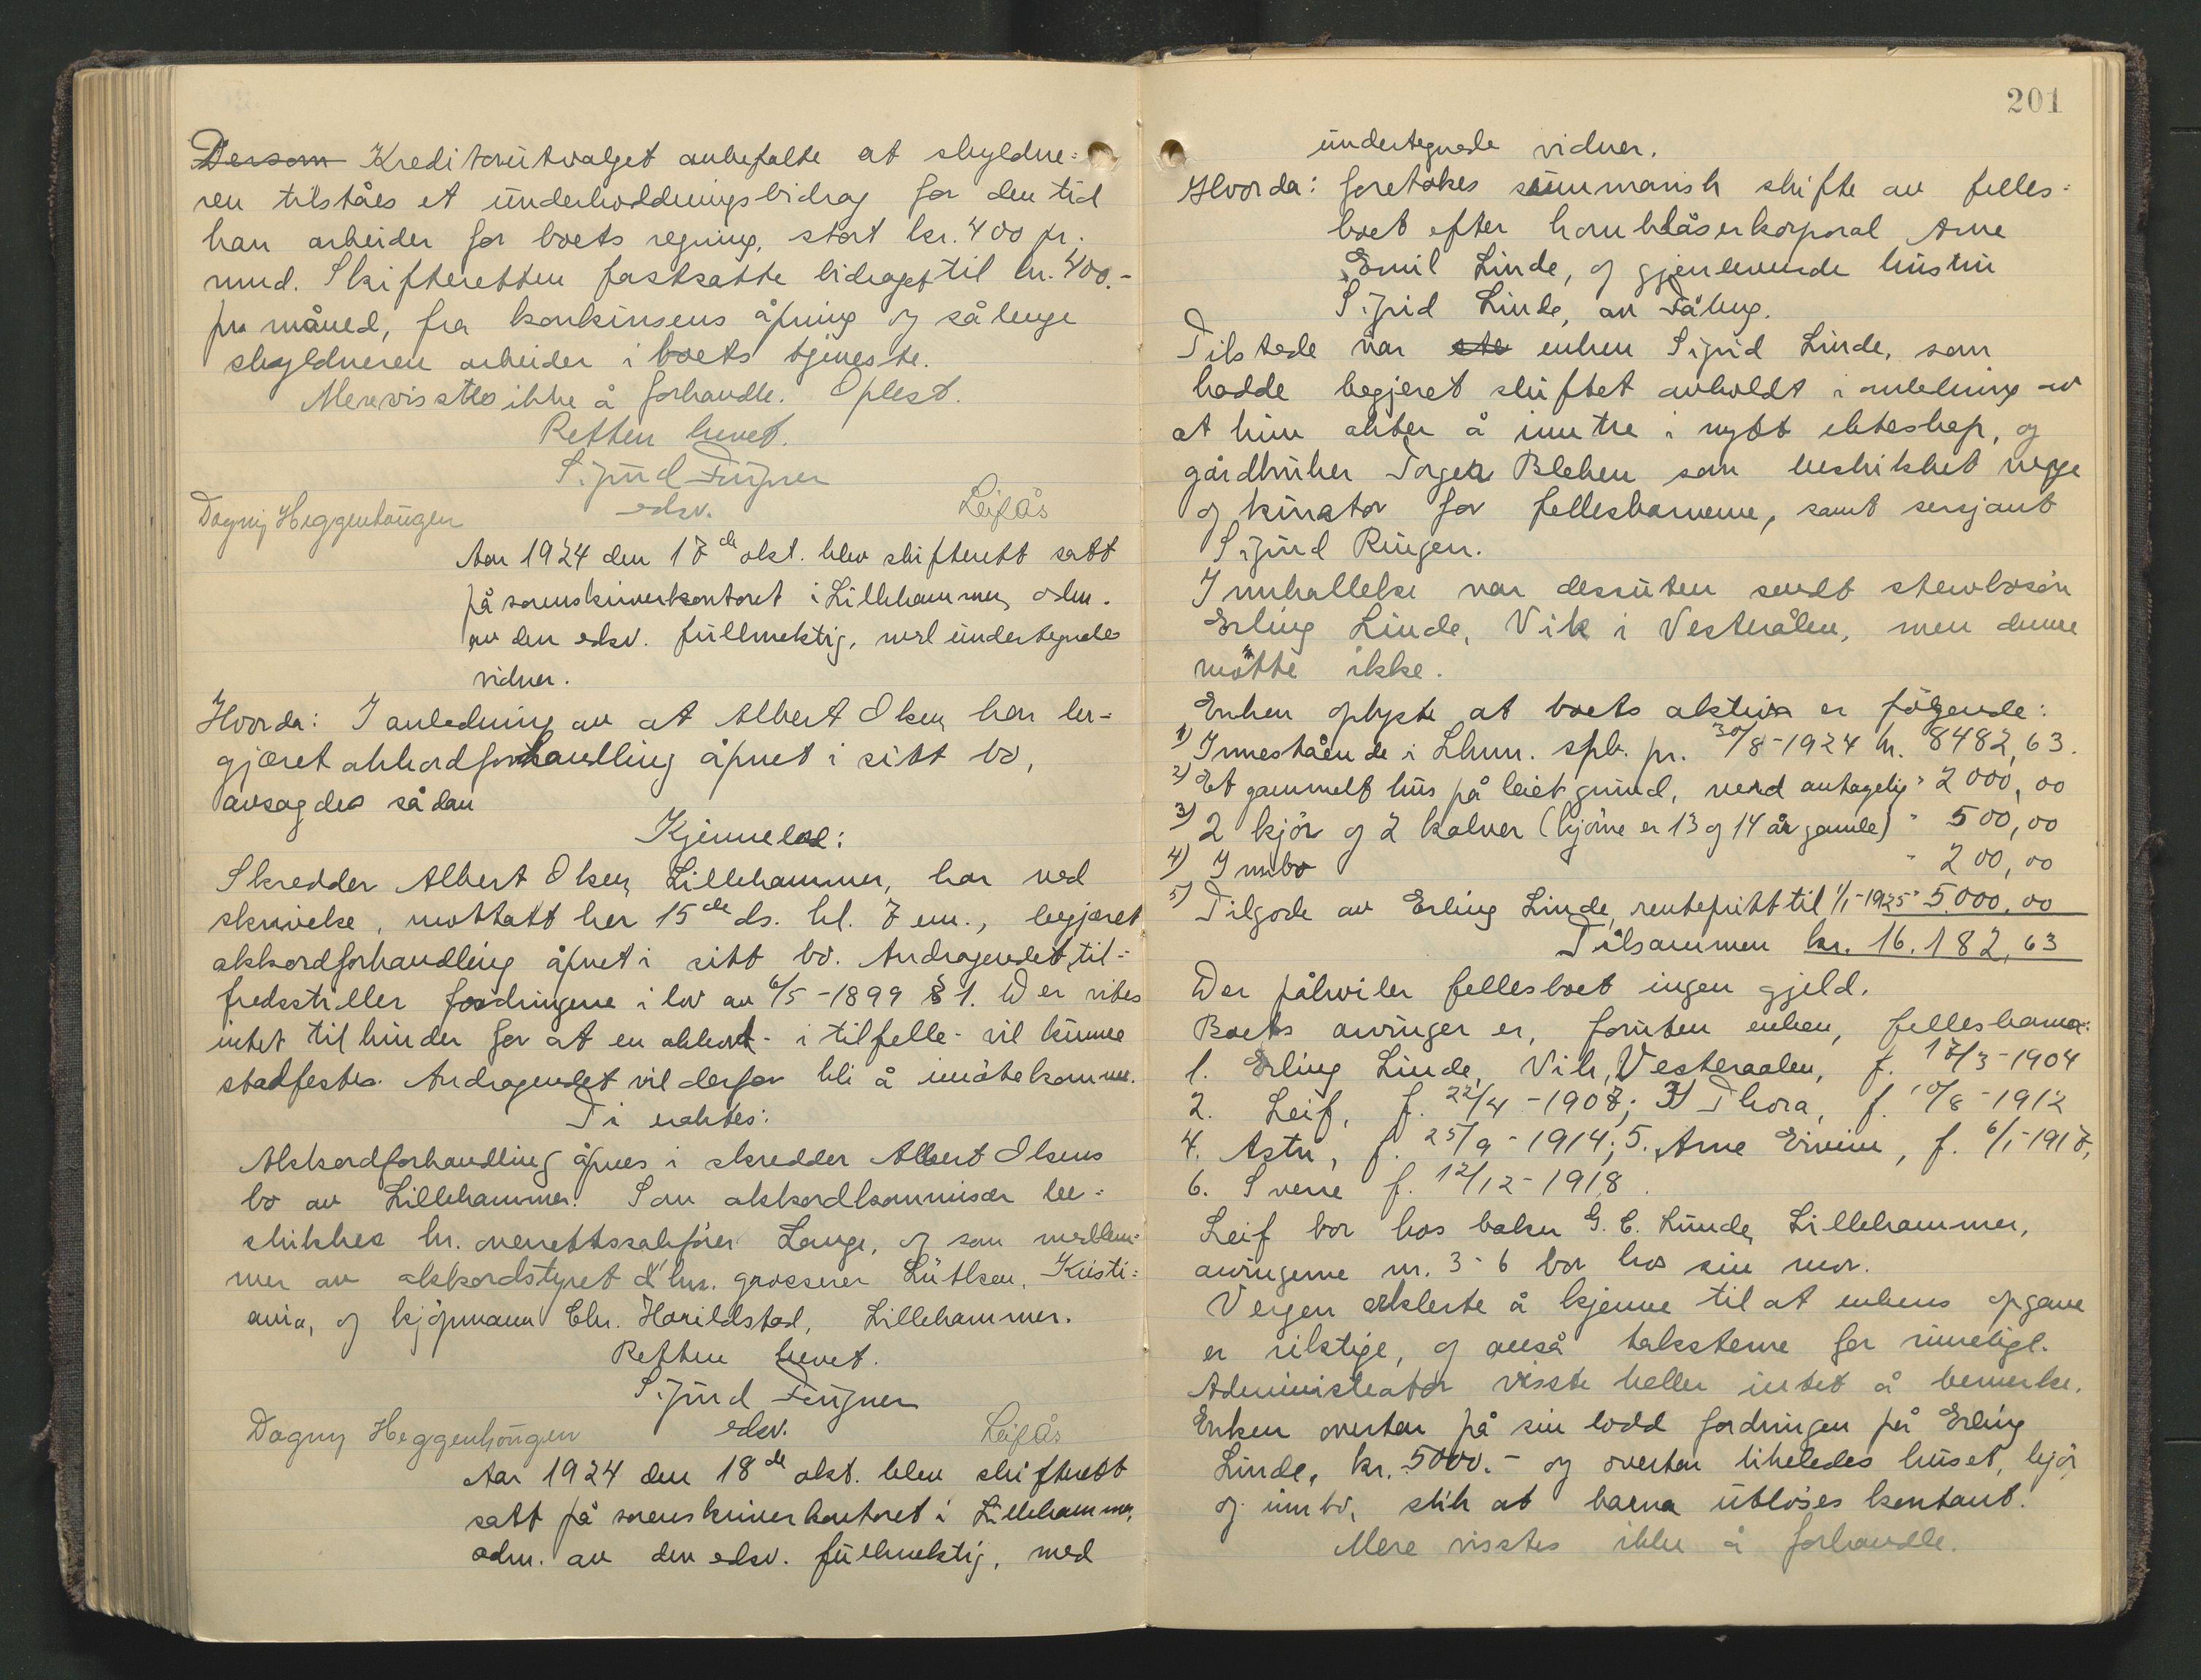 Dersom Kreditorutvalget anbefalte at skyldne=
ren tilståes et underholdningsbidrag for den tid
han arbeider for boets regning, stort kr. 400 pr.
mnd. Skifteretten fastsatte bidraget til kr. 400.-
pr. måned, fra konkursens åpning og sålenge
skyldneren arbeider i boets tjeneste.
Mere visstes ikke å forhandle. Oplest.
Retten hevet.
Sigurd Fougner
edsv.
Dagny Heggenhougen
Leif Ås
Aar 1924 den 17de okt. blev skifterett satt
på sorenskriverkontoret i Lillehammer, adm.
av den edsv. fullmektig, med undertegnede
vidner.
Hvorda: I anledning av at Albert Olsen har be-
gjæret akkordforhandling åpnet i sitt bo,
avsagdes sådan
Kjennelse:
Skredder Albert Olsen, Lillehammer, har ved
skrivelse, mottatt her 15de ds. kl. 7 em., begjæret
akkordforhandling åpnet i sitt bo. Andragendet til-
fredsstiller fordringene i lov av 6/5-1899 § 1. Der vites
intet til hinder for at en akkord - i tilfelle - vil kunne
stadfestes. Andragendet vil derfor bli å imøtekomme.
Ti eraktes:
Akkordforhandling åpnes i skredder Albert Olsens
bo av Lillehammer. Som akkordkommisær be=
skikkes hr. overrettssakfører Lange, og som medlem-
mer av akkordstyret d'hrr. grosserer Lütken, Kristi=
ania, og kjøpmann Chr. Harildstad, Lillehammer.
Retten hevet.
Sigurd Fougner
edsv.
Dagny Heggenhougen
Leif Ås
Aar 1924 den 18de okt. blev skifterett
satt på sorenskriverkontoret i Lillehammer,
adm. av den edsv. fullmektig, med
201
undertegnede vidner.
Hvorda: foretokes summarisk skifte av felles=
boet efter hornblåserkorporal Arne
Emil Linde, og gjenlevende hustru
Sigrid Linde, av Fåberg.
Tilstede var enken Sigrid Linde, som
hadde begjæret skiftet avholdt i anledning av
at hun akter å inntre i nytt ekteskap, og
gårdbruker Torger Bleken som beskikket verge
og kurator for fellesbarnene, samt sersjant
Sigurd Ringen.
Innkallelse var dessuten sendt stervbosøn
Erling Linde, Vik i Vesterålen, men denne
møtte ikke.
Enken oplyste at boets aktiva er følgende:
1) Innestående i Lhmr. spb. pr. 30/8-1924 kr. 8482,63.
2) Et gammelt hus på leiet grund, verd antagelig " 2000,00
3) 2 kjør og 2 kalver (kjørne er 13 og 14 år gamle) " 500,00
4) Innbo " 200,00
5) Tilgode av Erling Linde, rentefritt til 1/1-1925 " 5.000,00
Tilsammen kr. 16.182,63
Der påhviler fellesboet ingen gjeld.
Boets arvinger er, foruten enken, fellesbarna:
1. Erling Linde, Vik, Vesteraalen, f. 17/3-1904
2. Leif, f. 22/4-1907; 3) Thora, f. 10/8-1912
4. Astri, f. 25/9-1914; 5. Arne Eivin, f. 6/1-1917,
6. Sverre f. 12/12-1918.
Leif bor hos baker G. C. Lunde, Lillehammer,
arvingerne nr. 3-6 bor hos sin mor.
Vergen erklerte å kjenne til at enkens opgave
er riktige, og anså taksterne for rimelige.
Administrator visste heller intet å bemerke.
Enken overtar på sin lodd fordringen på Erling
Linde, kr. 5000.- og overtar likeledes huset, kjør
og innbo, slik at barna utløses kontant.
Mere visstes ikke å forhandle.